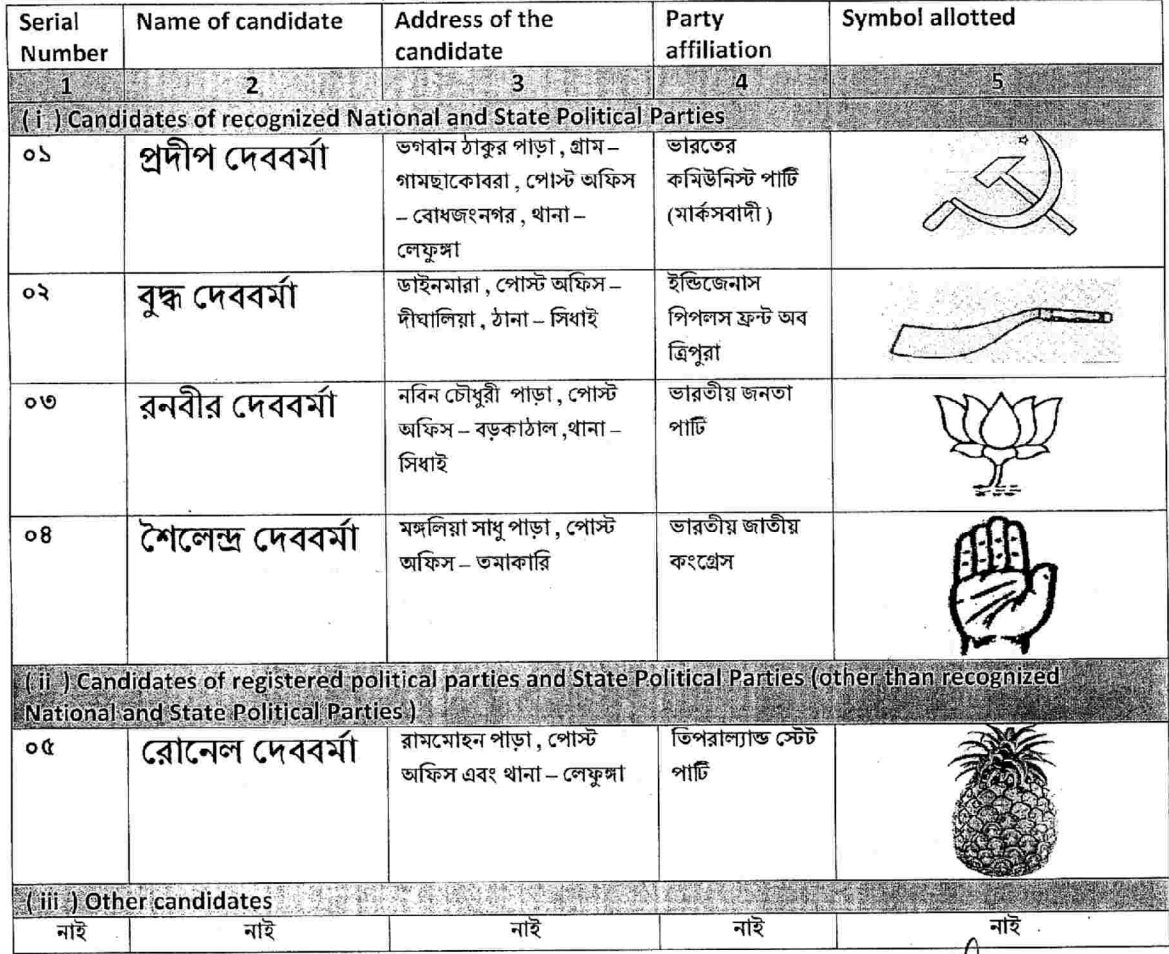 Serial Number Name of candidate Address of the candidate Party affiliation Symbol allotted
1 2 3 4 5
( i ) Candidates of recognized National and State Political Parties
০১ প্রদীপ দেববর্মা
ভগবান ঠাকুর পাড়া , গ্রাম –
গামছাকোবরা , পোস্ট অফিস
– বোধজংনগর , থানা –
লেফুঙ্গা
ভারতের
কমিউনিস্ট পার্টি
(মার্কসবাদী )
০২ বুদ্ধ দেববর্মা
ডাইনমারা , পোস্ট অফিস –
দীঘালিয়া , ঠানা – সিধাই
ইন্ডিজেনাস
পিপলস ফ্রন্ট অব
ত্রিপুরা
০৩ রনবীর দেববর্মা
নবিন চৌধুরী পাড়া , পোস্ট
অফিস – বড়কাঠাল ,থানা –
সিধাই
ভারতীয় জনতা
পার্টি
০৪ শৈলেন্দ্র দেববর্মা
মঙ্গলিয়া সাধু পাড়া , পোস্ট
অফিস – তমাকারি
ভারতীয় জাতীয়
কংগ্রেস
( ii ) Candidates of registered political parties and State Political Parties (other than recognized
National and State Political Parties )
০৫ রোনেল দেববর্মা
রামমোহন পাড়া , পোস্ট
অফিস এবং থানা – লেফুঙ্গা
তিপরাল্যান্ড স্টেট
পার্টি
( iii ) Other candidates
নাই নাই নাই নাই নাই